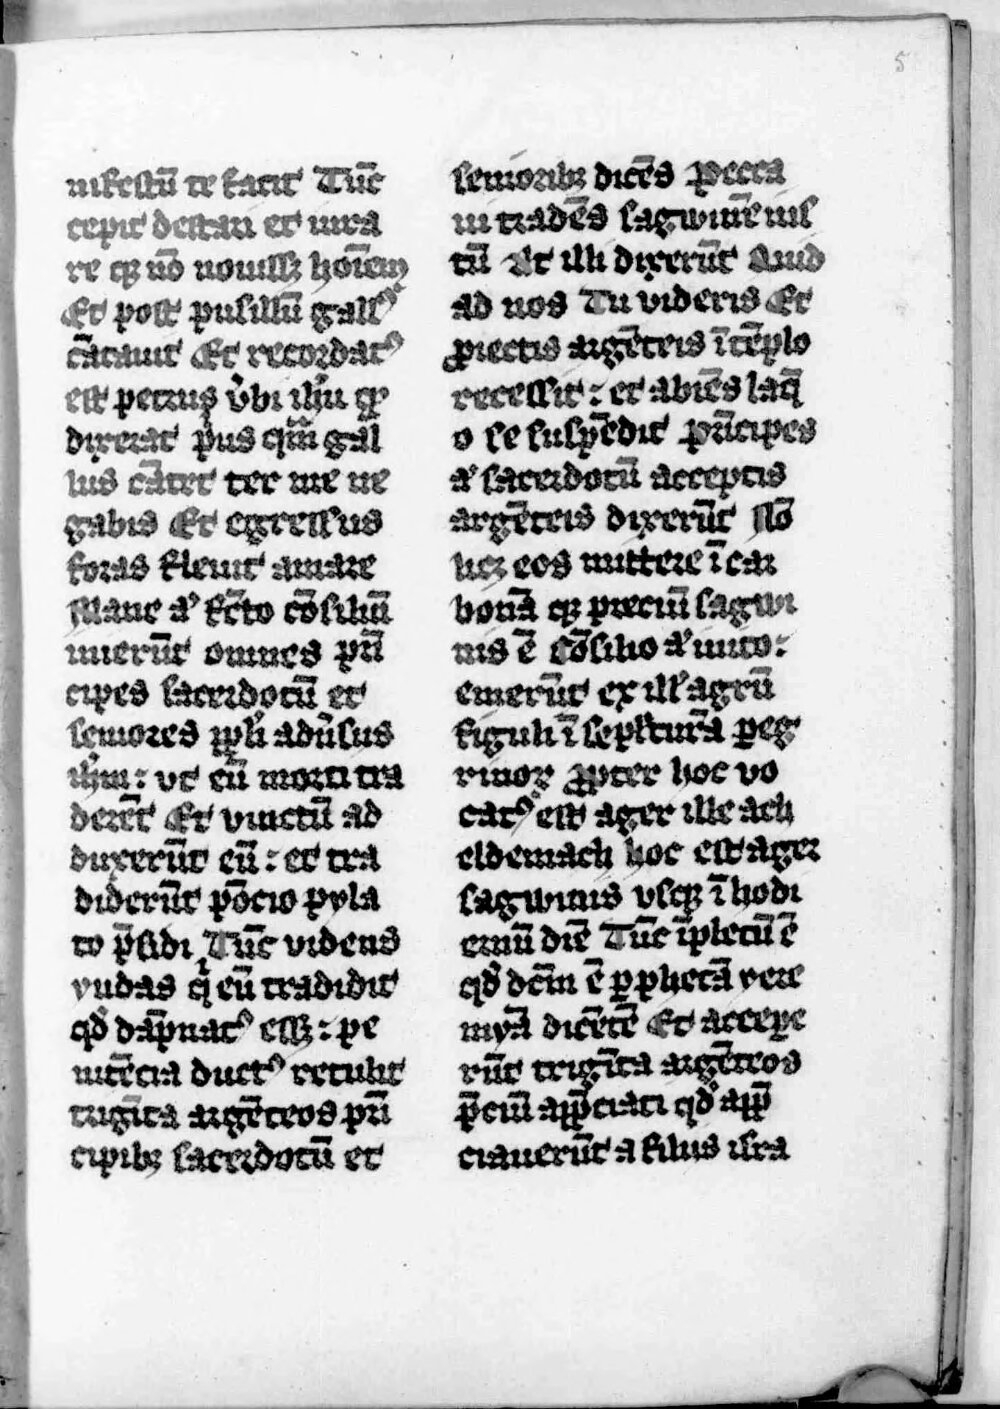 5
nifestū te facit Tūc
cepit destari et iura
re qꝫ nō nouissꝫ hoīem
Et post pusillū gallꝰ
cātauit Et recordatꝰ
est petrus v̓bi ih̓u qd̓
dixerat p̓us qm̄ gal
lus cātet ter me ne
gabis Et egressus
foras fleuit amare
Mane aͥ fc̄to cōsiliū
inierūt omnes pn̄
cipes sacerdotū et
seniores ppl̓i adu̓sus
ih̓m : vt eū morti tra
derēt Et vinctū ad
duxerūt eū : et tra
diderūt pōcio pyla
to p̄sidi Tūc videns
yudas qͥ eū tradidit
qd̓ dāpnatꝰ essꝫ : pe
nitēcia ductꝰ retulit
trigīta argēteos pn̄
cipibꝫ sacerdotū et
senioribꝫ dicēs Pecca
ui tradēs sagwinē ius
tū At illi dixerūt Quid
ad nos Tu videris Et
ꝓiectis argēteis ī tēplo
recessit : et abiēs laq̄
o se suspēdit pn̄cipes
aͥ sacerdotū acceptis
argēteis dixerūt Nō
licꝫ eos mittere ī car
bonā qꝫ preciū sagwi
nis ē Cōsilio aͥ inito :
emerūt ex ill̓ agrū
figuli ī sepl̓turā ꝑeg
rinoꝝ ꝓpter hoc vo
catꝰ est ager ille ach
eldemach hoc est ager
sagwinis vsqꝫ ī hodi
ernū diē Tūc īpletū ē
qd̓ dc̄m ē ꝑ ꝓphetā yere
myā dicētē Et accepe
rūt trigīta argēteos
p̄ciū app̄ciati qd̓ app̄
ciauerūt a filiis isra